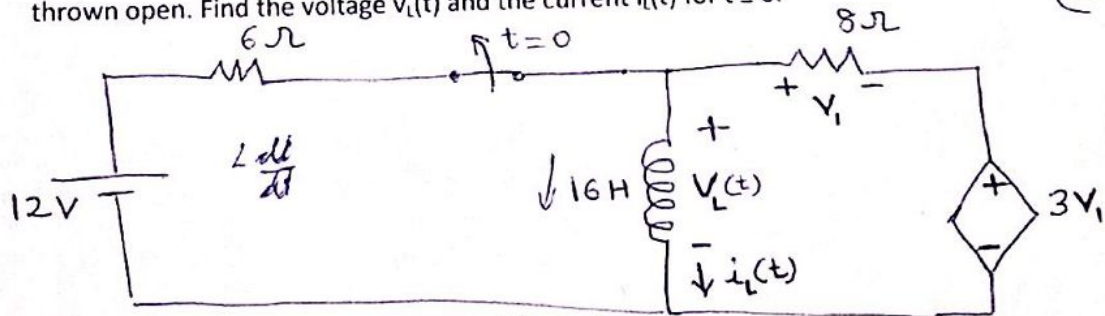 thrown open. Find the voltage VL(t) and the current iL(t) for t
6 Ω
t=0
8 Ω
+ V1 -
12V
L di/dt
↓ 16H
+
VL(t)
-
↓ iL(t)
+
-
3V1